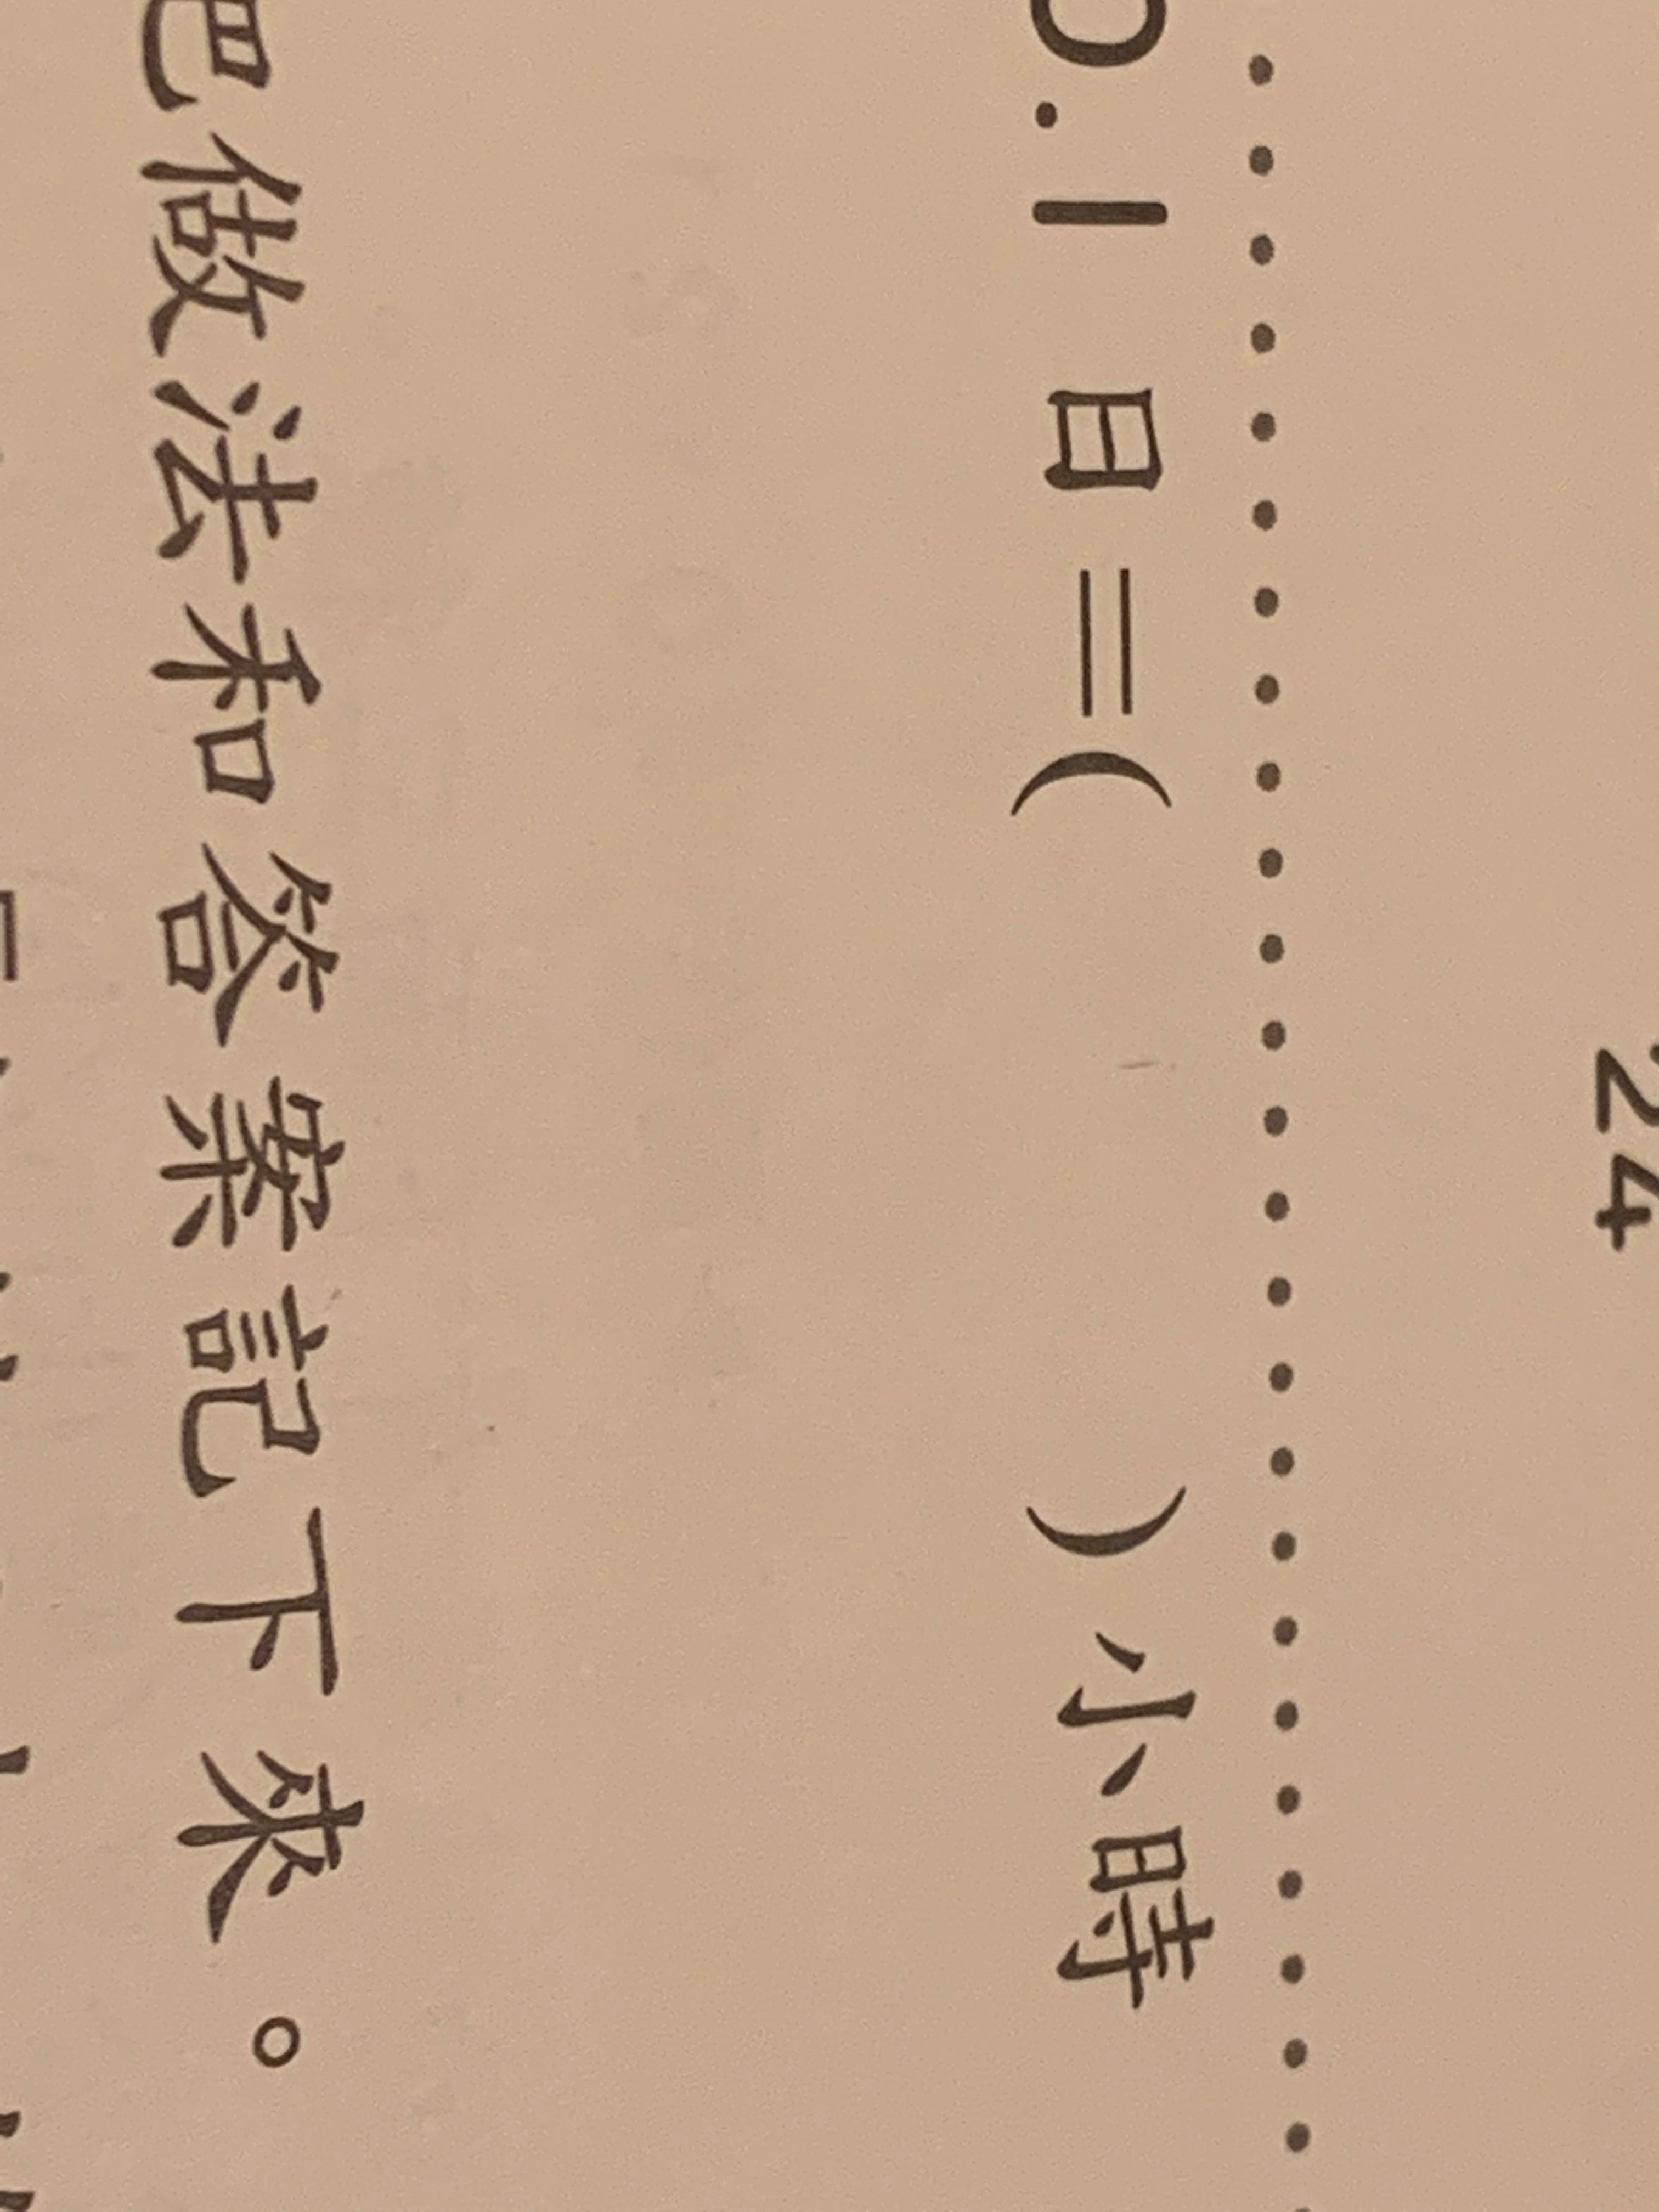 24
0.1 日=( )小時
把做法和答案記下來。